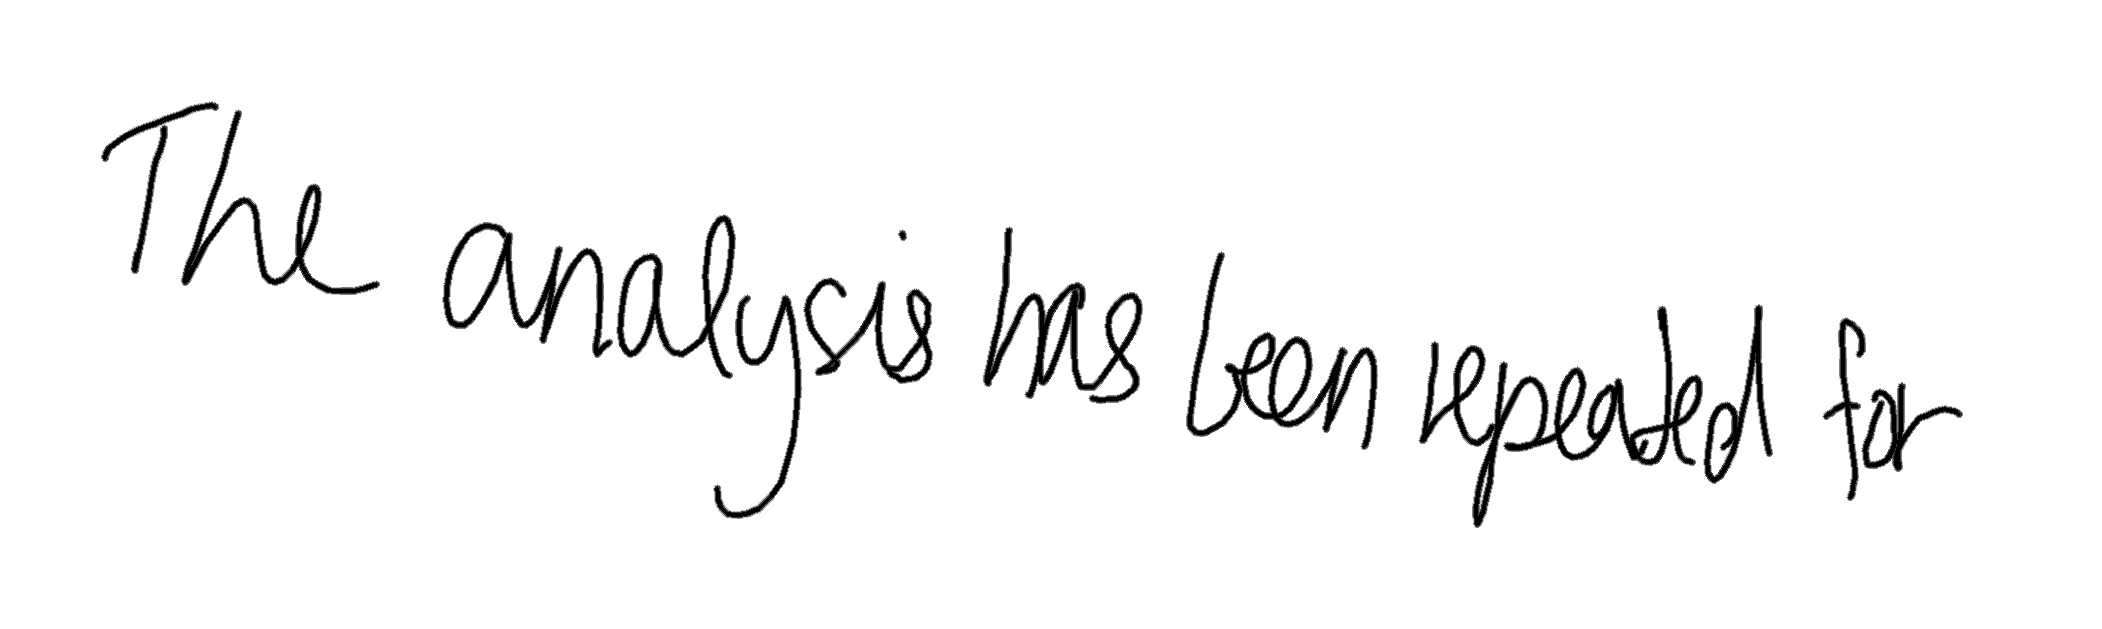 The analysis has been repeated for